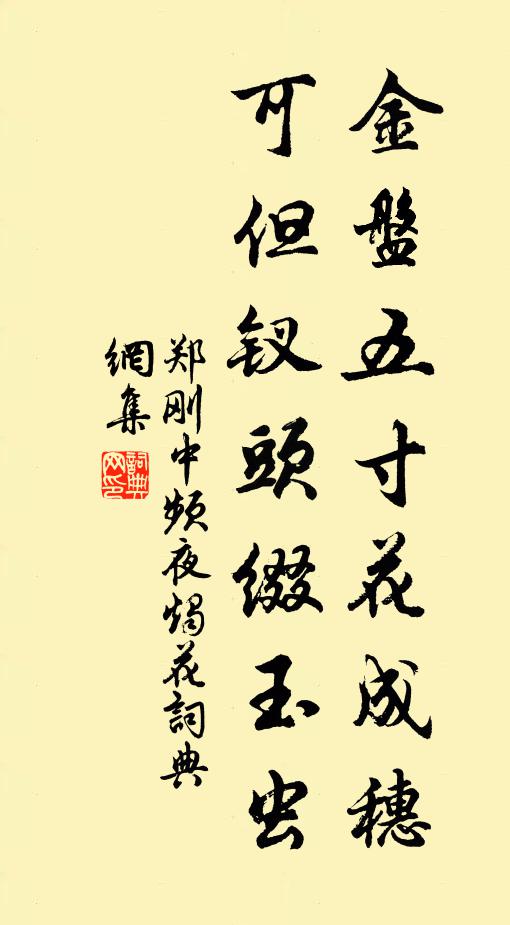 金盤五寸花成穗
可但钗頭缀玉虫
郑刚中频夜烛花詞典
網集
詞典網印